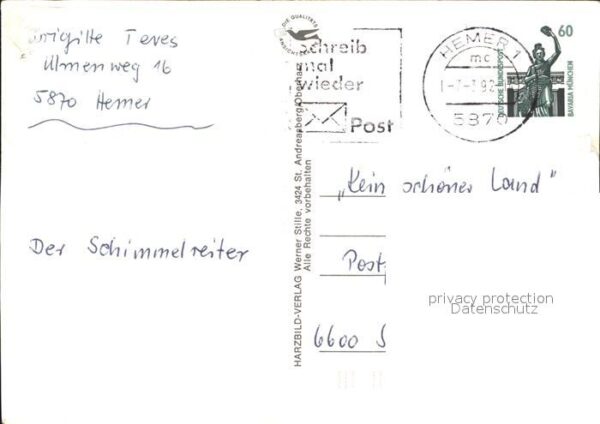 Brigitte Teves
Ulmenweg 16
5870 Hemer
Der Schimmelreiter
DIE QUALITÄTS
HARZBILD-VERLAG Werner Stille, 3424 St. Andreasberg/Oberharz
Alle Rechte vorbehalten
Schreib
mal
wieder
Post
HEMER 1
mc
5870
60
DEUTSCHE BUNDESPOST
BAVARIA MÜNCHEN
„Kein schöner Land"
Post
6600 S
privacy protection
Datenschutz